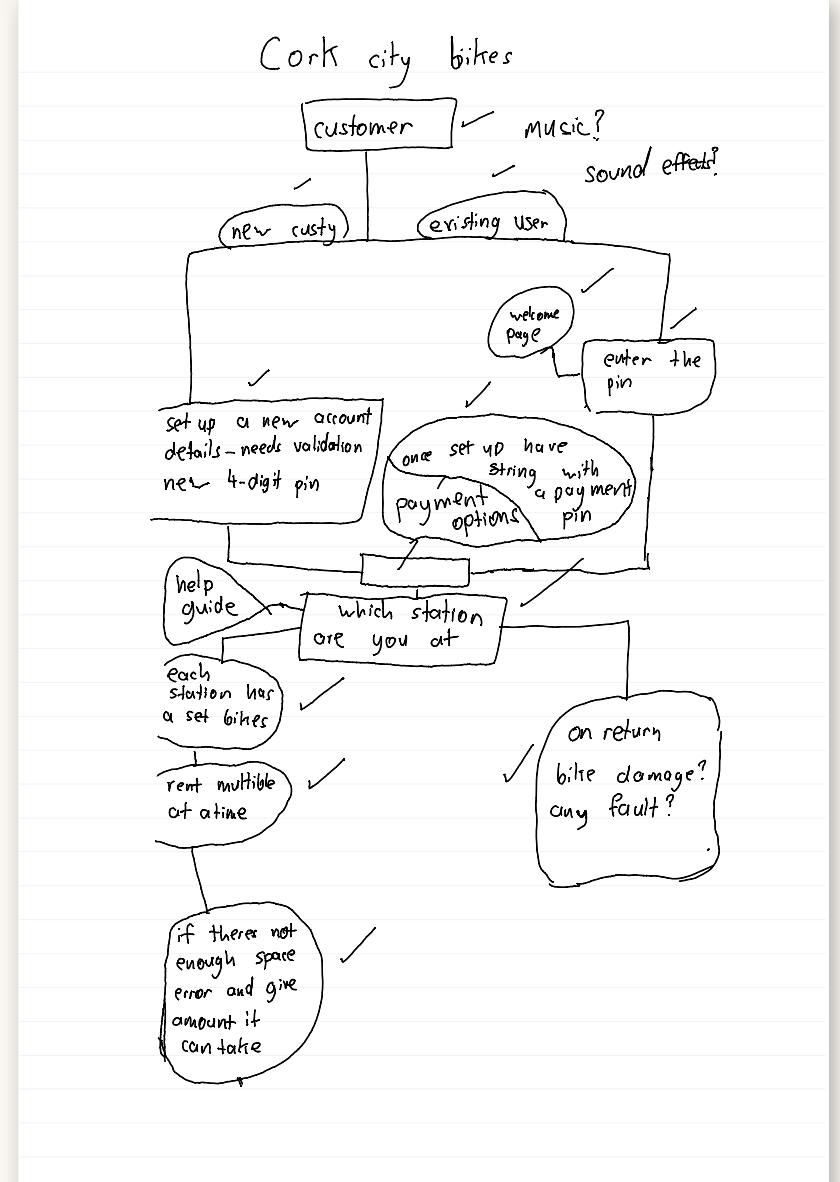 Cork city bikes
customer
music?
sound effects?
new custy
existing user
welcome
page
enter the
pin
set up a new account
details - needs validation
new 4-digit pin
once set up have
string with
a payment
pin
payment
options
help
guide
which station
are you at
each
station has
a set bikes
rent multible
at a time
on return
bike damage?
any fault?
if theres not
enough space
error and give
amount it
can take